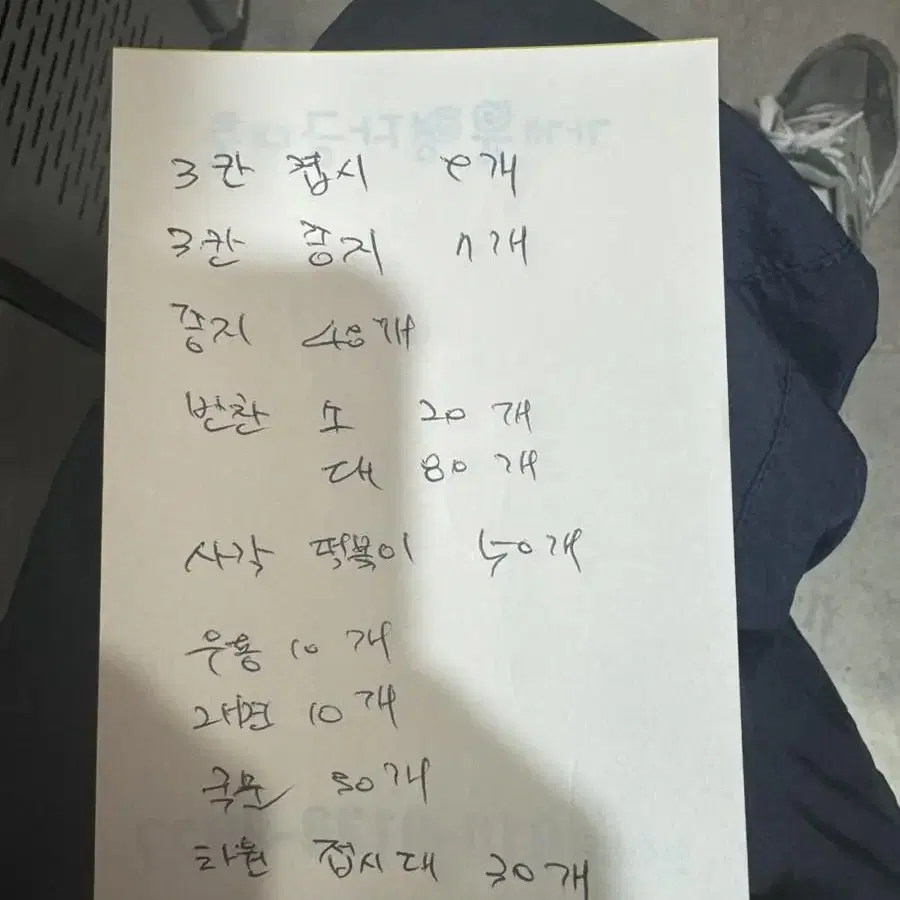 3칸 접시 개
3칸 종지 7개
종지 40개
반찬 소 20개
대 80개
사각 떡볶이 50개
우동 10개
라면 10개
국물 50개
타원 접시 대 30개